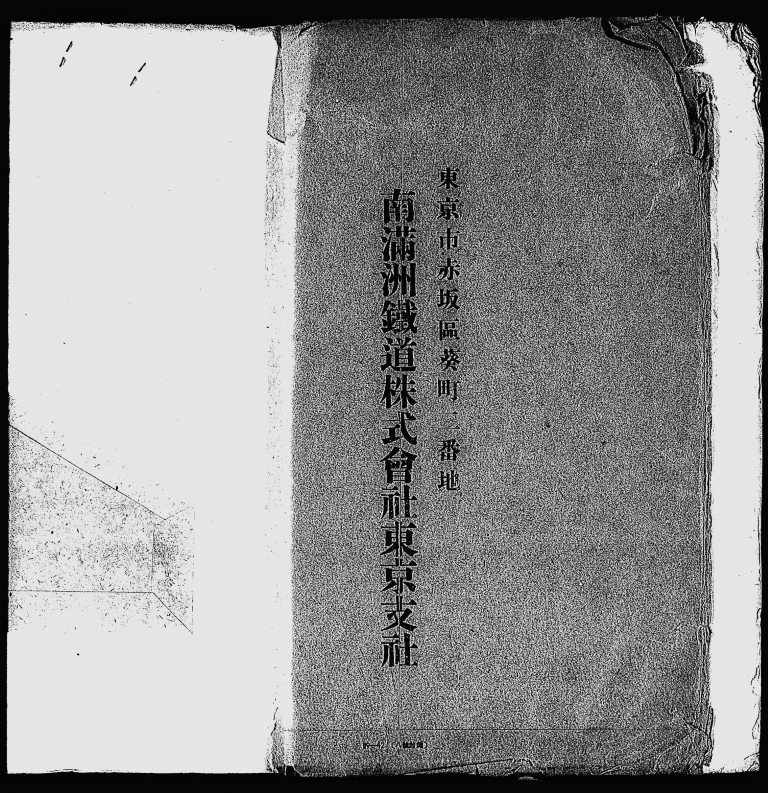 東京市赤坂區葵町二番地
南滿洲鐵道株式會社東京支社